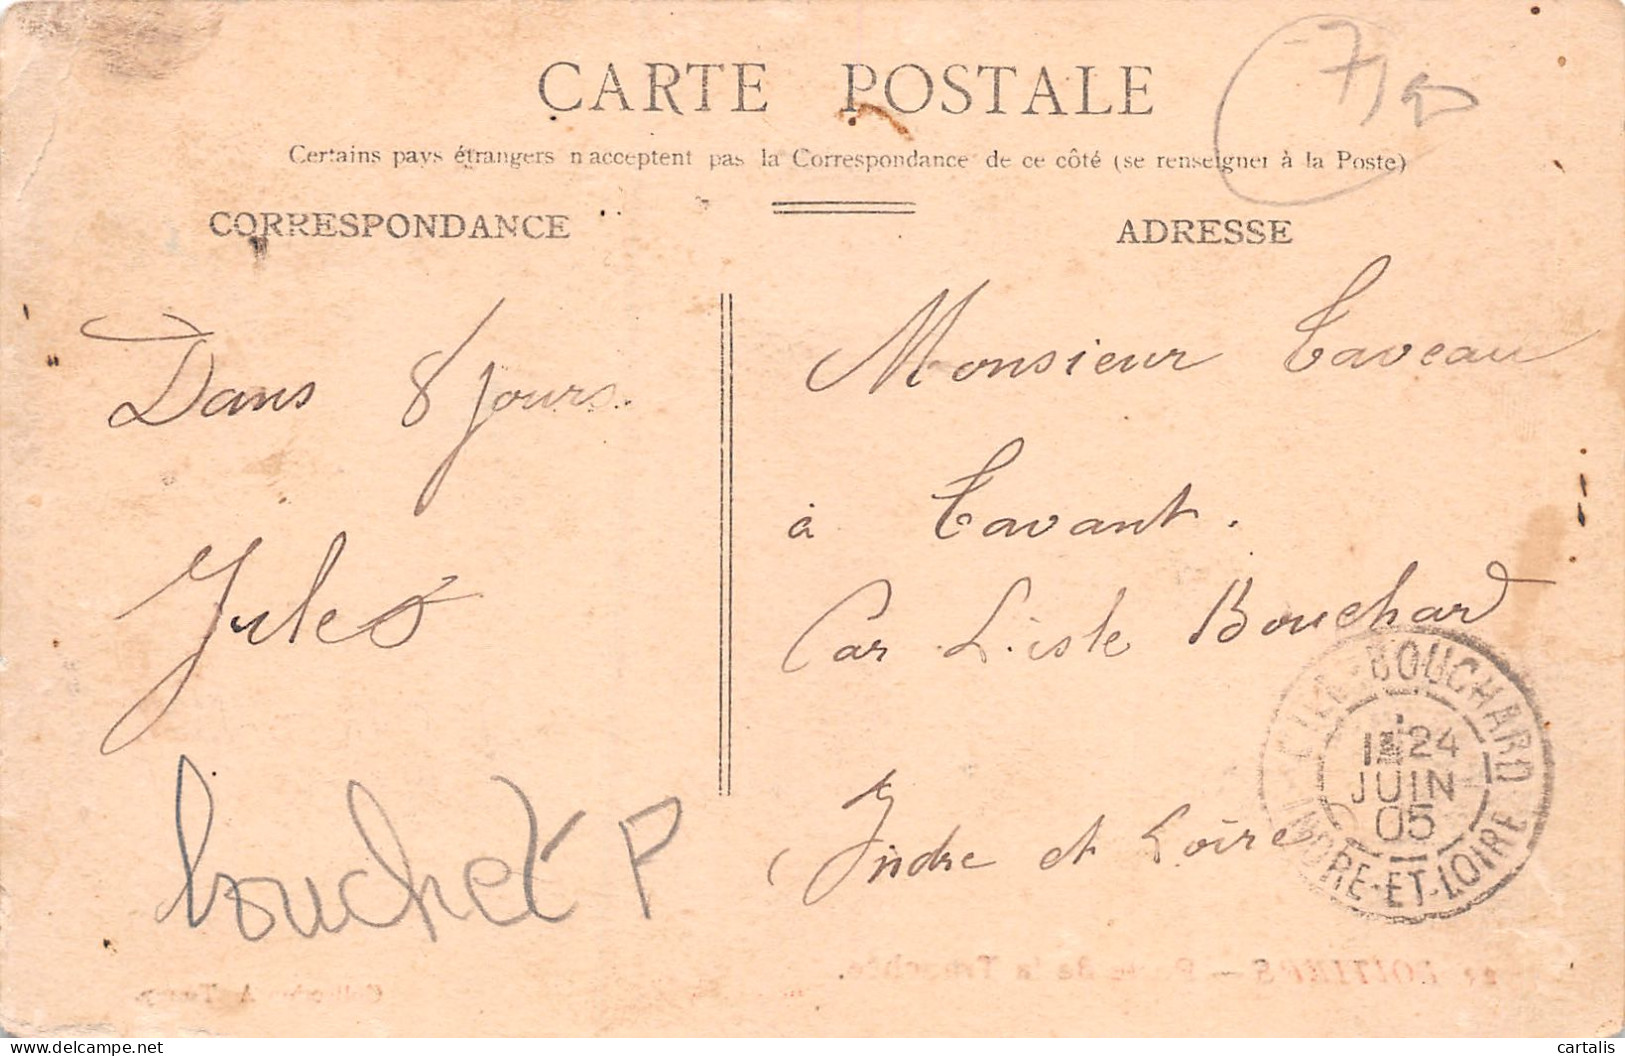 CARTE POSTALE
Certains pays étrangers n'acceptent pas la Correspondance de ce côté (se renseigner à la Poste)
CORRESPONDANCE
ADRESSE
Dans 8 jours.
Jules
bouchet P
Monsieur Taveau
à Tavant.
Par L'isle Bouchard
Indre et Loire
L'ILE-BOUCHARD
24
JUIN
05
INDRE-ET-LOIRE
POITIERS - de la Tranchée.
www.delcampe.net
cartalis